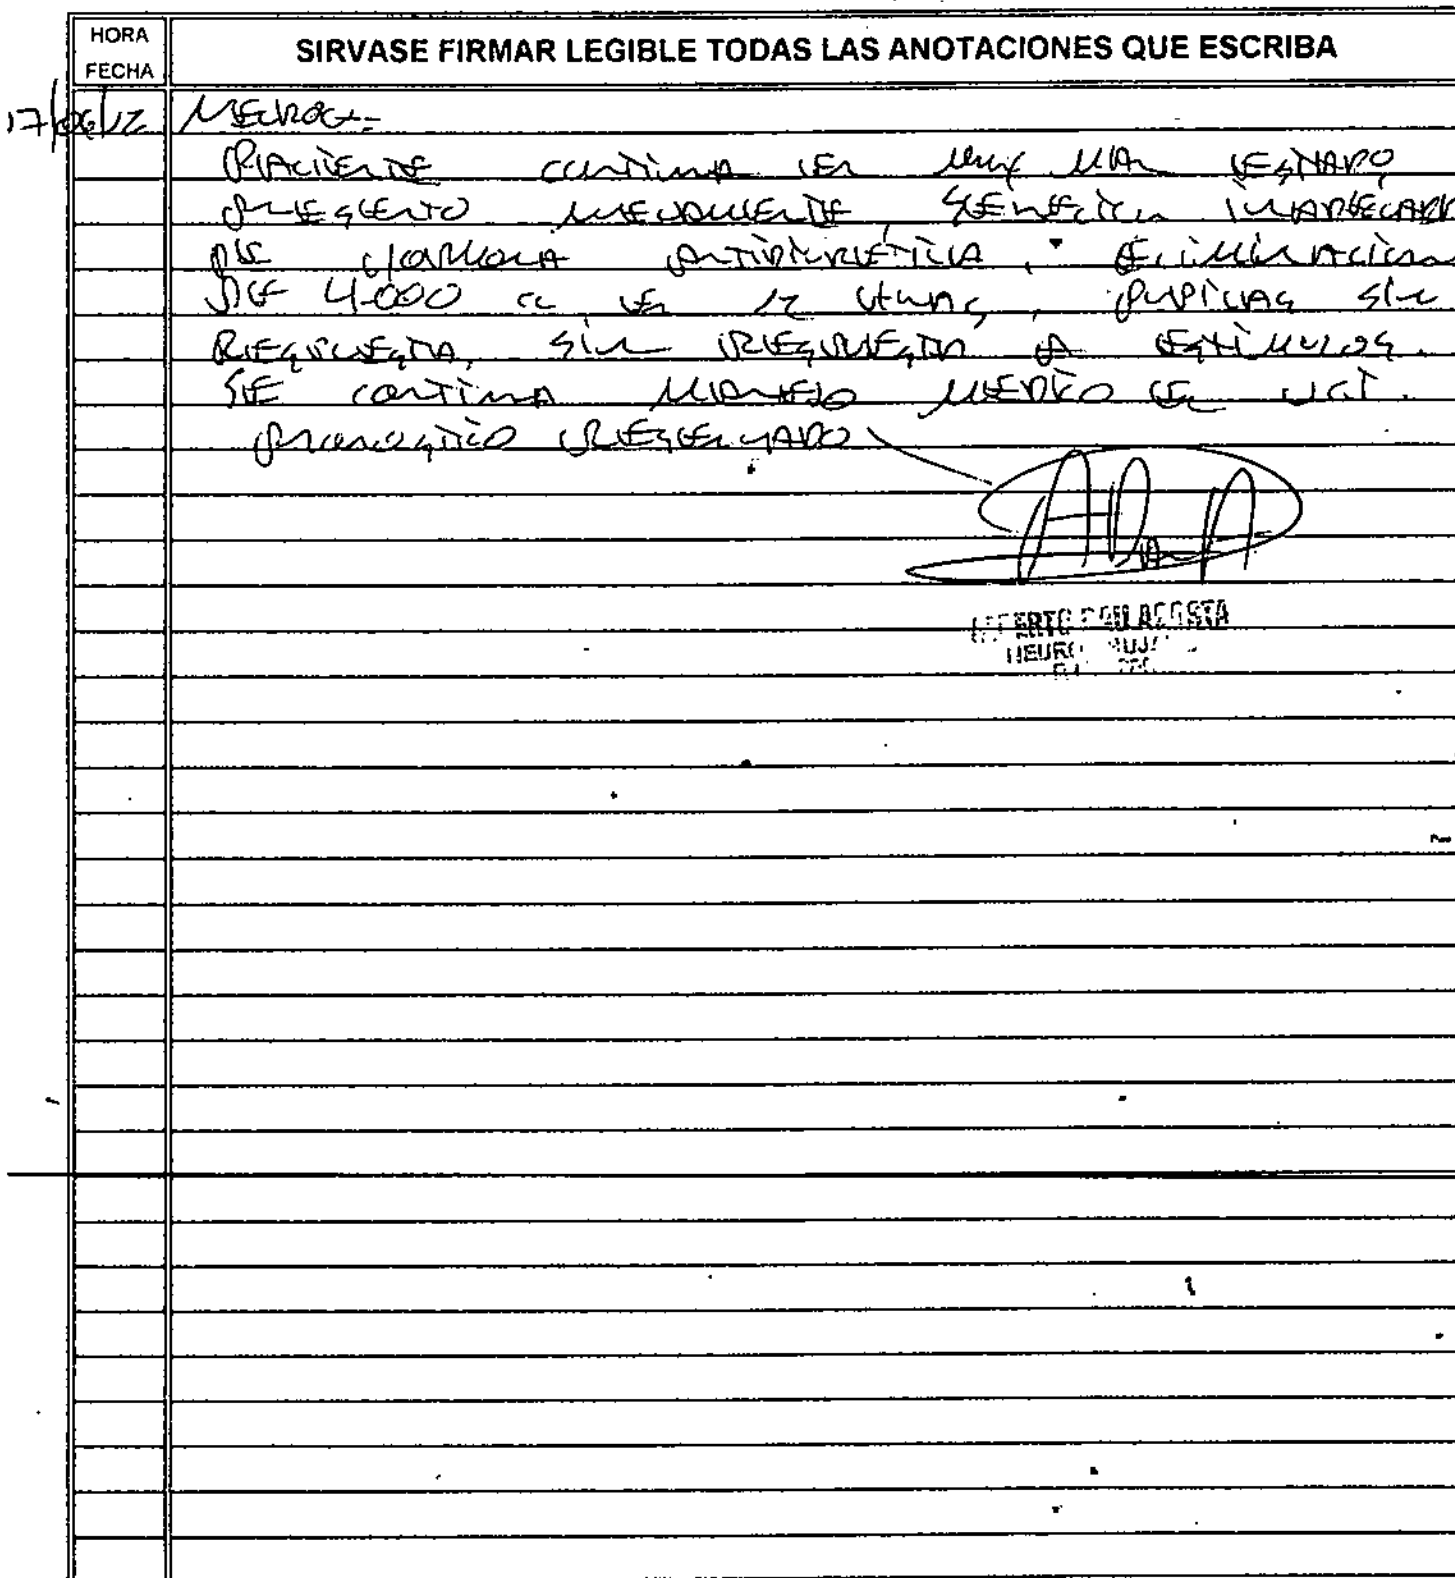 HORA
FECHA
SIRVASE FIRMAR LEGIBLE TODAS LAS ANOTACIONES QUE ESCRIBA
17/06/12 NEUROCX=
PACIENTE CONTINUA EN MUY MAL ESTADO,
PRESENTO NUEVAMENTE SECRECION INADECUADA
DE HORMONA ANTIDIURETICA, ELIMINACION
DE 4.000 CC EN 12 HORAS, PUPILAS SIN
RESPUESTA, SIN RESPUESTA A ESTIMULOS.
SE CONTINUA MANEJO MEDICO EN UCI.
PRONOSTICO RESERVADO
ACOSTA